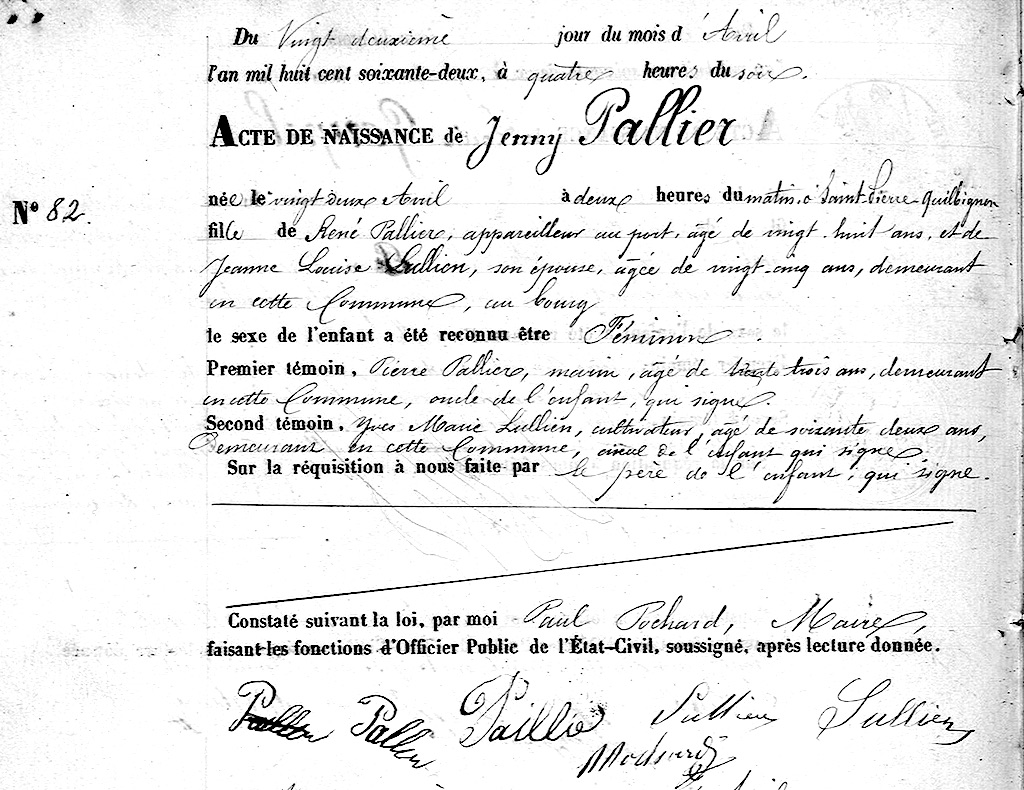 Du Vingt deuxième jour du mois d'Avril
l'an mil huit cent soixante-deux, à quatre heures du soir.
ACTE DE NAISSANCE de Jenny Pallier
N° 82.
née le vingt deux Avril à deux heures du matin, à Saint-Pierre-Quilbignon
fille de René Pallier, appareilleur au port, âgé de vingt-huit ans, et de
Jeanne Louise Lullien, son épouse, âgée de vingt-cinq ans, demeurant
en cette Commune, au bourg
le sexe de l'enfant a été reconnu être Féminin.
Premier témoin, Pierre Pallier, marin, âgé de trente trois ans, demeurant
en cette Commune, oncle de l'enfant, qui signe.
Second témoin, Yves Marie Lullien, cultivateur, âgé de soixante deux ans,
Demeurant en cette Commune, aïeul de l'enfant qui signe.
Sur la réquisition à nous faite par le père de l'enfant, qui signe.
Constaté suivant la loi, par moi Paul Pochard, Maire,
faisant les fonctions d'Officier Public de l'État-Civil, soussigné, après lecture donnée.
Pallier Paillié Lullien Lullien